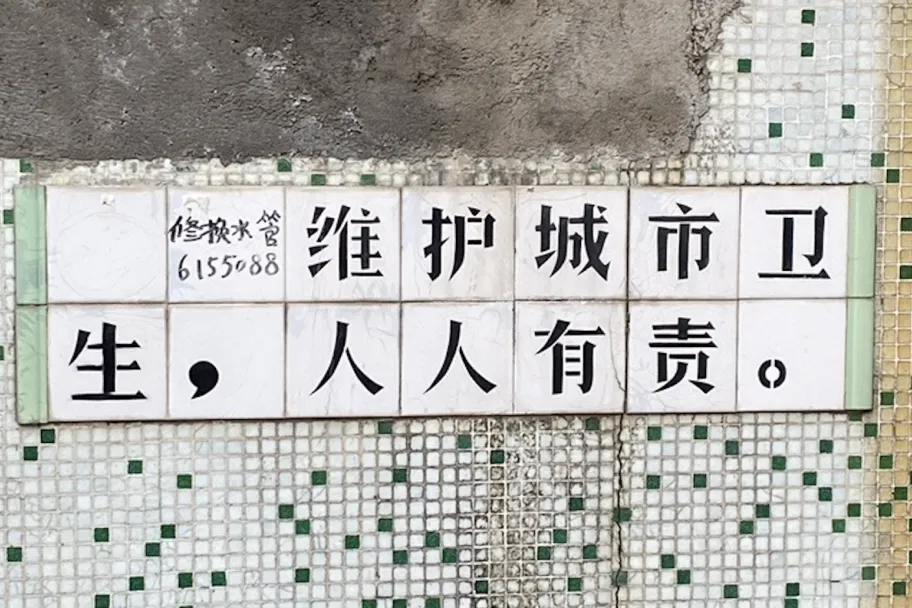 修换水管
6155088
维护城市卫
生，人人有责。